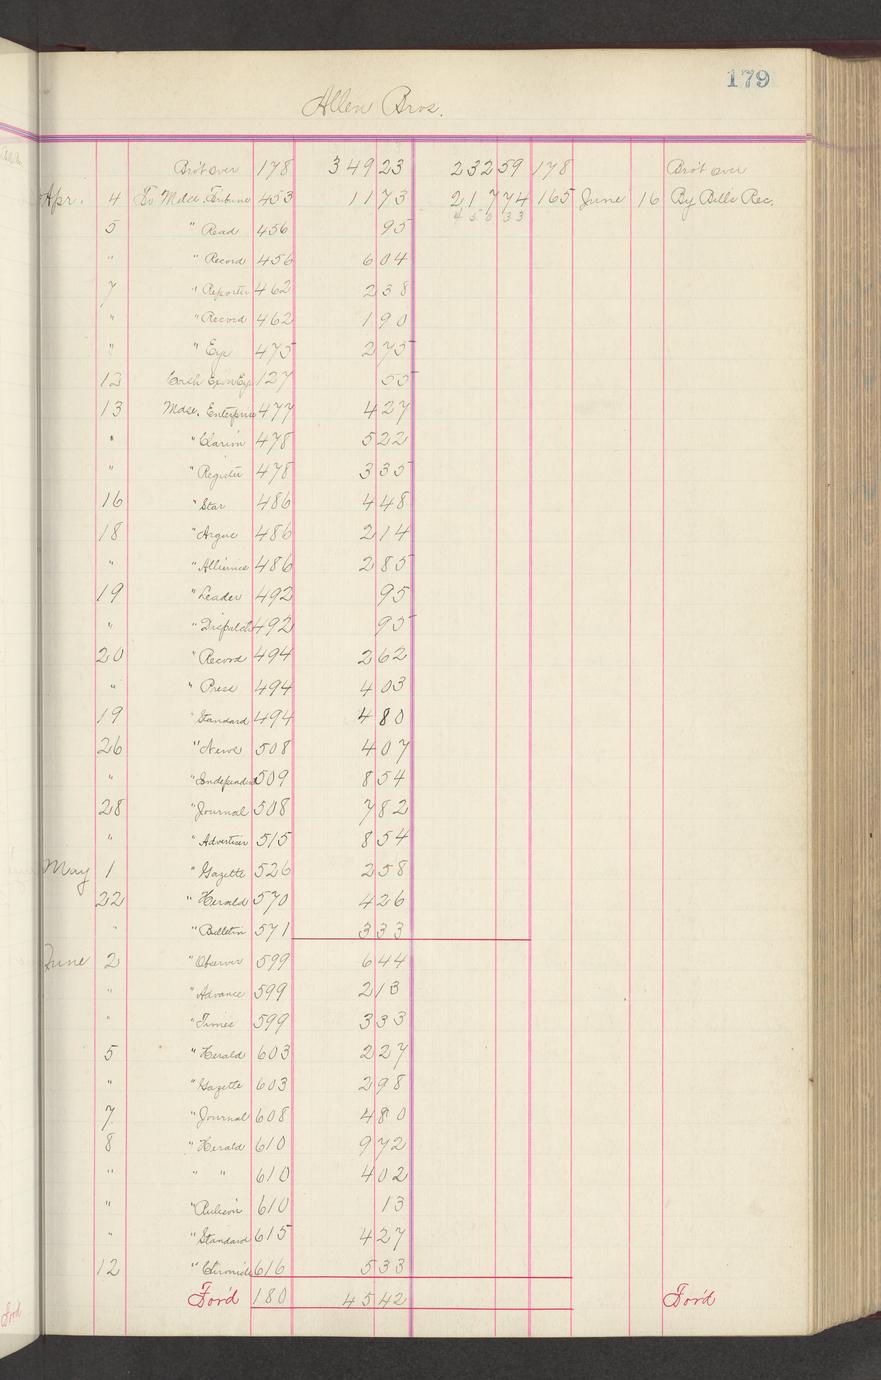 179
Allen Bros.
Bro't over 178 349 23 232 59 178 Bro't over
Apr. 4 To Mdse. Tribune 453 11 73 217 74 165 June 16 By Bills Rec.
5 " Read 456 95 450 33
" " Record 456 6 04
7 " Reporter 462 2 38
" " Record 462 1 90
" " Eye 475 2 75
12 Cash 127 55
13 Mdse. Enterprise 477 4 27
" " Clarion 478 5 22
" " Register 478 3 35
16 " Star 486 4 48
18 " Argue 486 2 14
" " Alliance 486 2 85
19 " Leader 492 95
" " Dispatch 492 95
20 " Record 494 2 62
" " Press 494 4 03
19 " Standard 494 4 80
26 " News 508 4 07
" " Independent 509 8 54
28 " Journal 508 7 82
" " Advertiser 515 8 54
May 1 " Gazette 526 2 58
22 " Herald 570 4 26
" " Bulletin 571 3 33
June 2 " Observer 599 6 44
" " Advance 599 2 13
" " Times 599 3 33
5 " Herald 603 2 27
" " Gazette 603 2 98
7 " Journal 608 4 80
8 " Herald 610 9 72
" " " 610 4 02
" " 610 13
" " Standard 615 4 27
12 " Chronicle 616 5 33
For'd 180 45 42 For'd